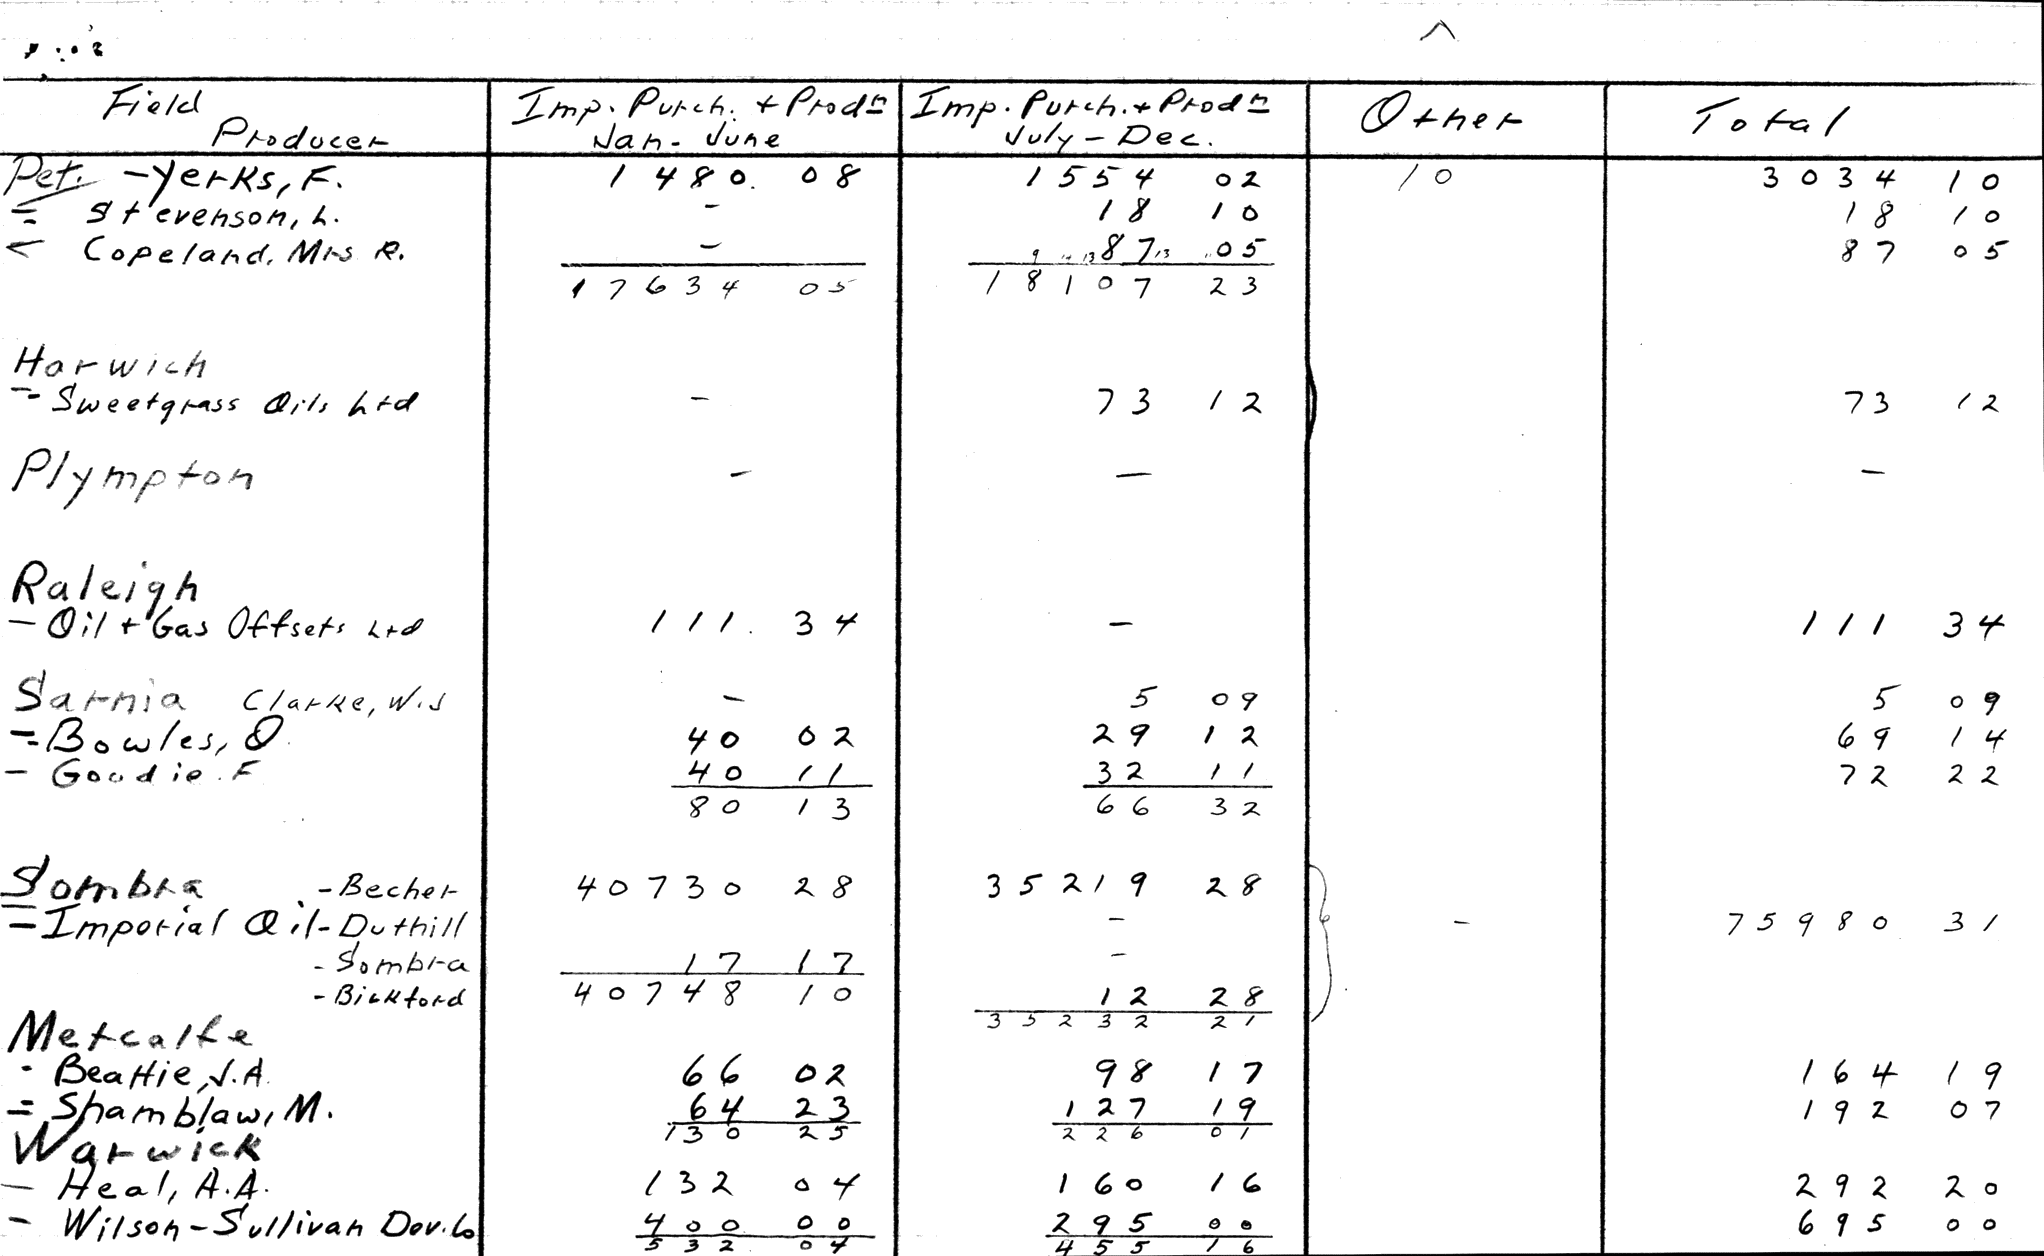 Field Imp. Purch. + Prodn Imp. Purch. + Prodn Other Total
Producer Jan - June July - Dec.
Pet. - Yerks, F. 1480. 08 1554 02 10 3034 10
= Stevenson, L. - 18 10 18 10
Copeland, Mrs R. - 87 05 87 05
17634 05 18107 23
Harwich
- Sweetgrass Oils Ltd - 73 12 73 12
Plympton - - -
Raleigh
- Oil + Gas Offsets Ltd 111. 34 - 111 34
Sarnia Clarke, W.J - 5 09 5 09
- Bowles, O. 40 02 29 12 69 14
- Goodie. F 40 11 32 11 72 22
80 13 66 32
Sombra - Becher 40730 28 35219 28
- Imperial Oil - Duthill - - 75980 31
- Sombra 17 17 -
- Bickford 40748 10 12 28
35232 21
Metcalfe
- Beattie, J.A. 66 02 98 17 164 19
= Shamblaw, M. 64 23 127 19 192 07
130 25 226 01
Warwick
- Heal, A.A. 132 04 160 16 292 20
- Wilson - Sullivan Dev. Co 400 00 295 00 695 00
532 04 455 16